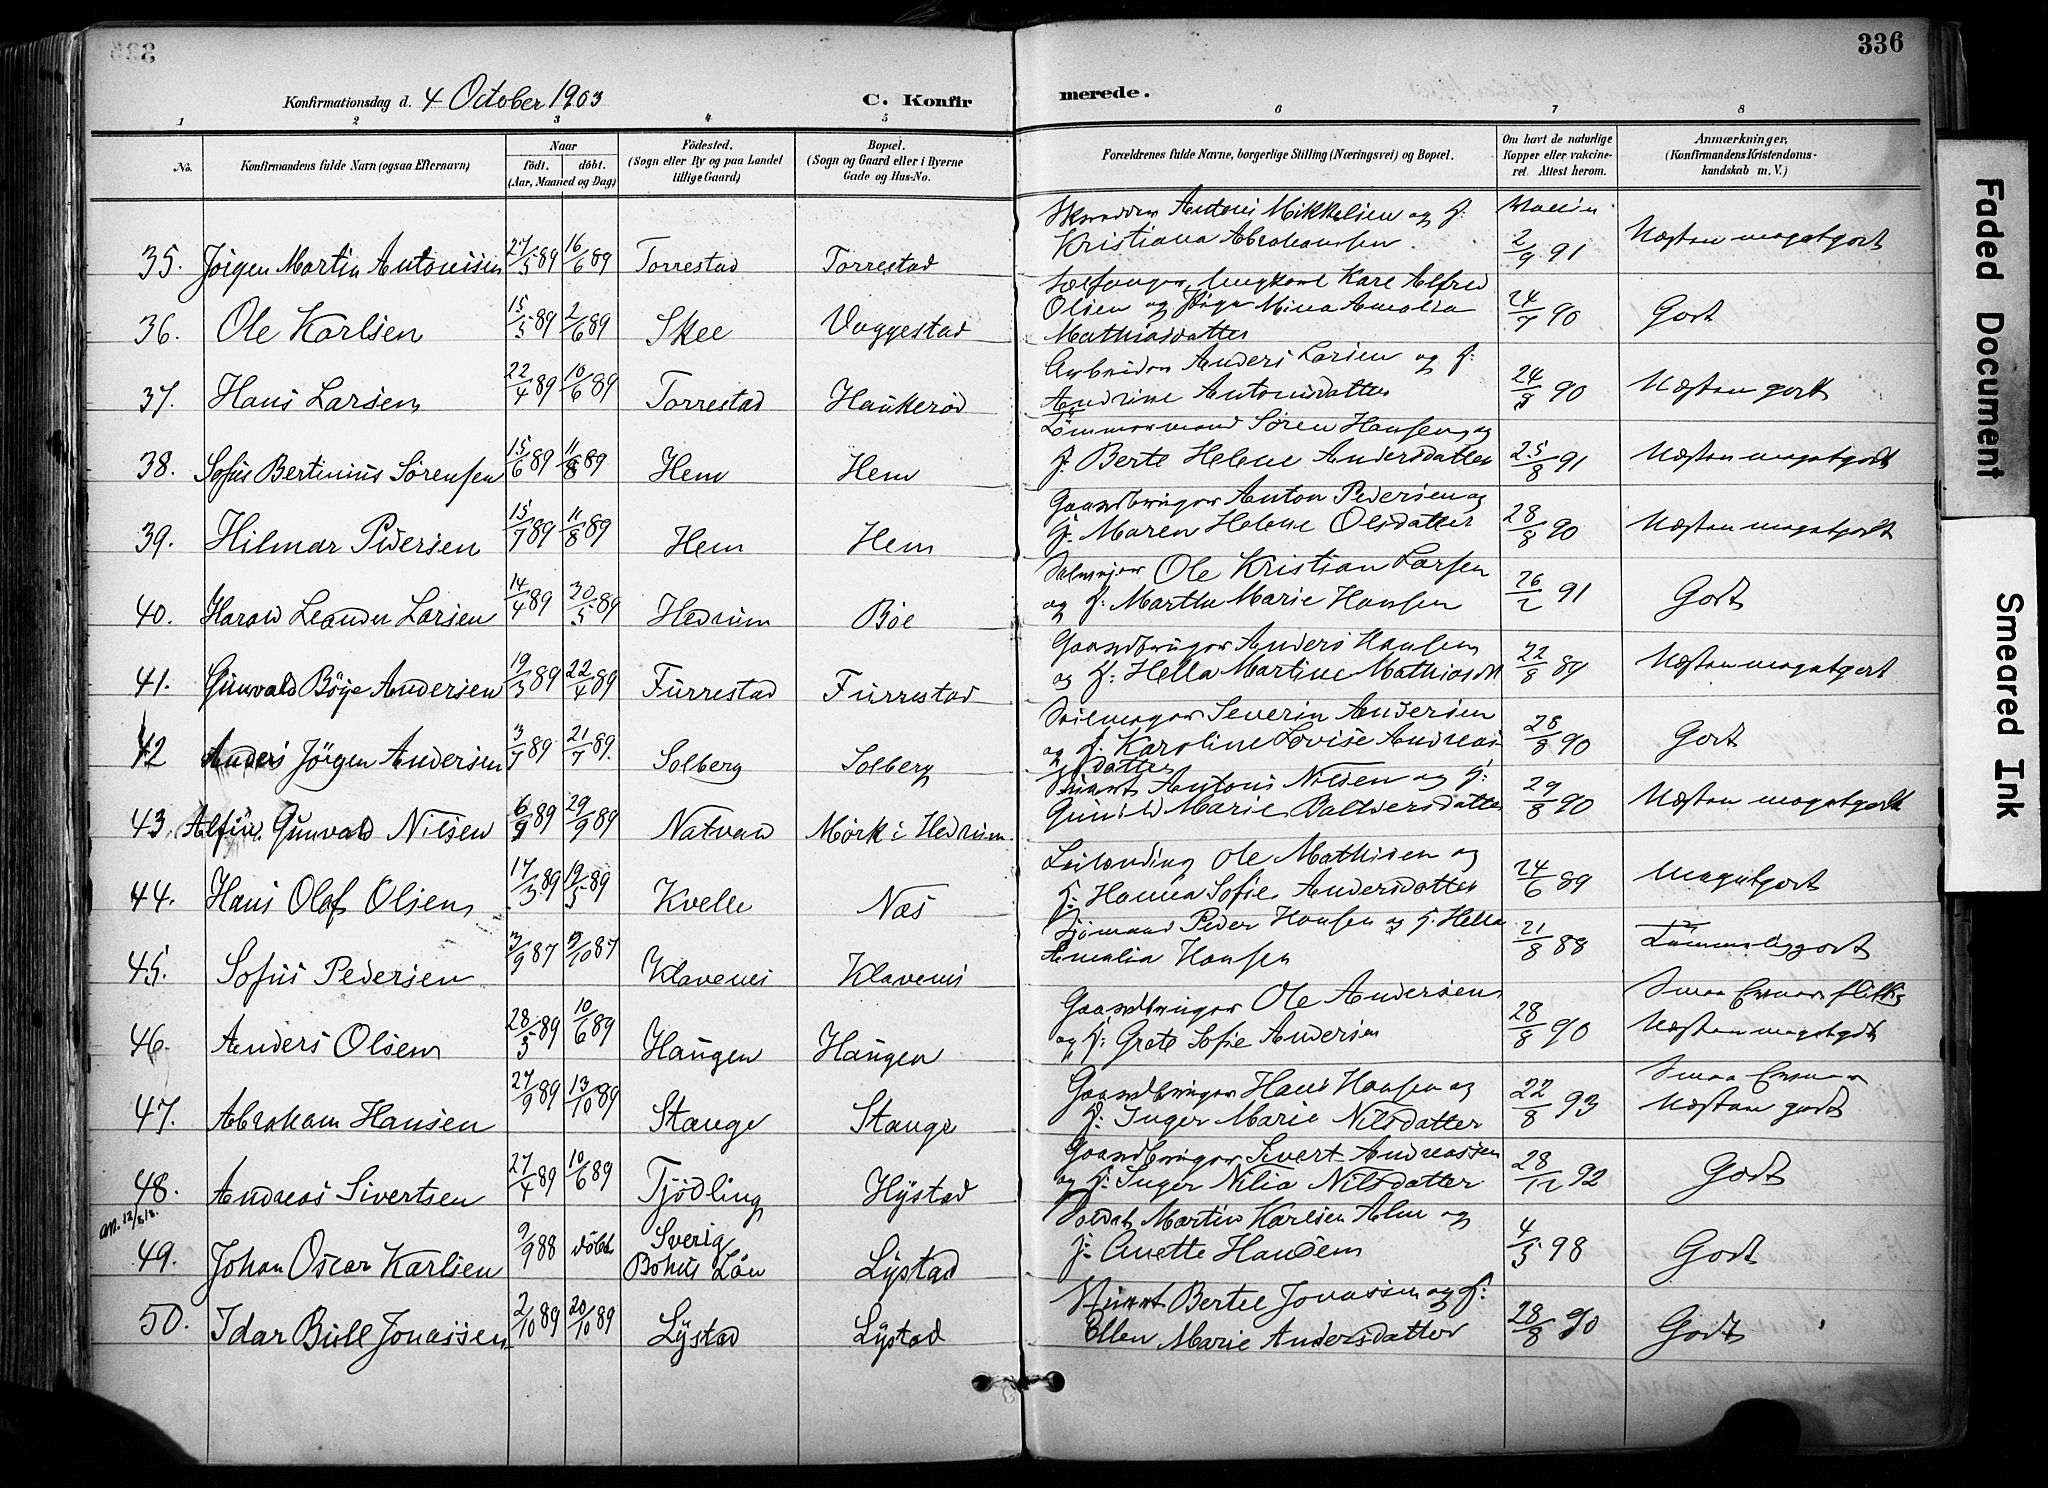 336
Konfirmationsdag d. 4 October 1903 C. Konfirmerede.
1 2 3 4 5 6 7 8
No. Konfirmandens fulde Navn (ogsaa Efternavn) Naar født. døbt. (Aar, Maaned og Dag) Fødested. (Sogn eller By og paa Landet tillige Gaard) Bopæl. (Sogn og Gaard eller i Byerne Gade og Hus-No. Forældrenes fulde Navne, borgerlige Stilling (Næringsvei) og Bopæl. Om havt de naturlige Kopper eller vakcineret. Attest herom. Anmærkninger, (Konfirmandens Kristendomskundskab m. V.)
35. Jørgen Martin Antonissen 27/5 89 16/6 89 Torrestad Torrestad Skrædder Antoni Mikkelsen og H: Kristiana Abrahamsen 2/9 91 Næsten megetgodt
36. Ole Karlsen 15/5 89 2/6 89 Skee Vaggestad Sælfanger, Ungkarl Karl Alfred Olsen og Pige Mina Amalia Mathiasdatter 24/7 90 Godt
37. Hans Larsen 22/4 89 10/6 89 Torrestad Haukerød Arbeider Anders Larsen og H: Andrine Antonisdatter 24/8 90 Næsten godt
38. Sofus Bertinius Sørensen 15/6 89 11/8 89 Hem Hem Tømmermand Søren Hansen og H: Berte Helene Andersdatter 25/8 91 Næsten megetgodt
39. Hilmar Pedersen 15/7 89 11/8 89 Hem Hem Gaardbruger Anton Pedersen og H: Maren Helene Olsdatter 28/8 90 Næsten megetgodt
40. Harald Leander Larsen 14/4 89 30/5 89 Hedrum Bøe Ole Kristian Larsen og H: Marthe Marie Hansen 26/2 91 Godt
41. Gunvald Böye Andersen 19/3 89 22/4 89 Furrestad Furrestad Gaardbruger Anders Hansen og H: Hella Martine Mathiasdt 22/8 89 Næsten megetgodt
42 Anders Jörgen Andersen 3/7 89 21/7 89. Solberg Solberg Seilmager Severin Andersen og H. Karoline Lovise Andreasdatter 28/8 90 Godt
43. Alfin Gunvald Nilsen 6/9 89 29/9 89 Natvad Mørk i Hedrum Antoni Nilsen og H: Gunild Marie Baltsersdatter 29/8 90 Næsten megetgodt
44. Hans Olaf Olsen 17/3 89 19/5 89 Kvelle Næs Leilænding Ole Mathisen og H: Hanna Sofie Andersdatter 24/6 89 Megetgodt
45. Sofus Pedersen 3/9 87 9/10 87 Klavenes Klavenes Sjømand Peder Hansen og H. Hella Amalia Hansen 21/8 88 Temmelig godt
46. Anders Olsen 28/3 89 10/6 89 Haugen Haugen Gaardbruger Ole Andersen og H: Grete Sofie Andersen 28/8 90 Næsten megetgodt
47. Abraham Hansen 27/9 89 13/10 89 Stange Stange Gaardbruger Hans Hansen og H: Inger Marie Nilsdatter 22/8 93 Næsten godt
48. Andreas Sivertsen 27/4 89 10/6 89 Tjødling Hystad Gaardbruger Sivert Andreassen og H: Inger Nilia Nilsdatter 28/12 92 Godt
49. Johan Oscar Karlsen 9/9 88 døbt Sverig Bohus Län Lystad Soldat Martin Karlsen Alm og H: Anette Hansen 4/5 98 Godt
50. Idar Bull Jonassen 2/10 89 20/10 89 Lystad Lystad Bertel Jonassen og H: Ellen Marie Andersdatter 28/8 90 Godt
Faded Document
Smeared Ink